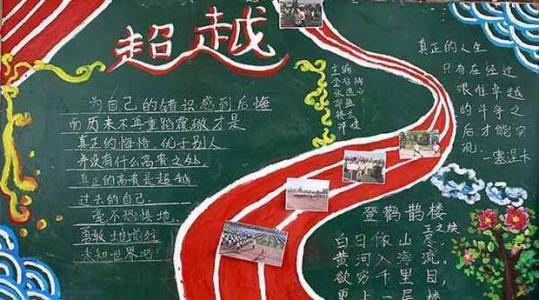 超越
为自己的错误感到后悔
而历来不再重蹈覆辙才是
真正的悔悟。优于别人
并没有什么高贵之处
真正的高贵是超越
过去的自己
毫不恐惧地
勇敢地前往
未知世界吧!
主编
真正的人生
只有在经过
艰难卓越
的斗争之
后才能实
现。
—塞涅卡
登鹳鹊楼
王之涣
白日依山尽,
黄河入海流。
欲穷千里目
更上一层楼